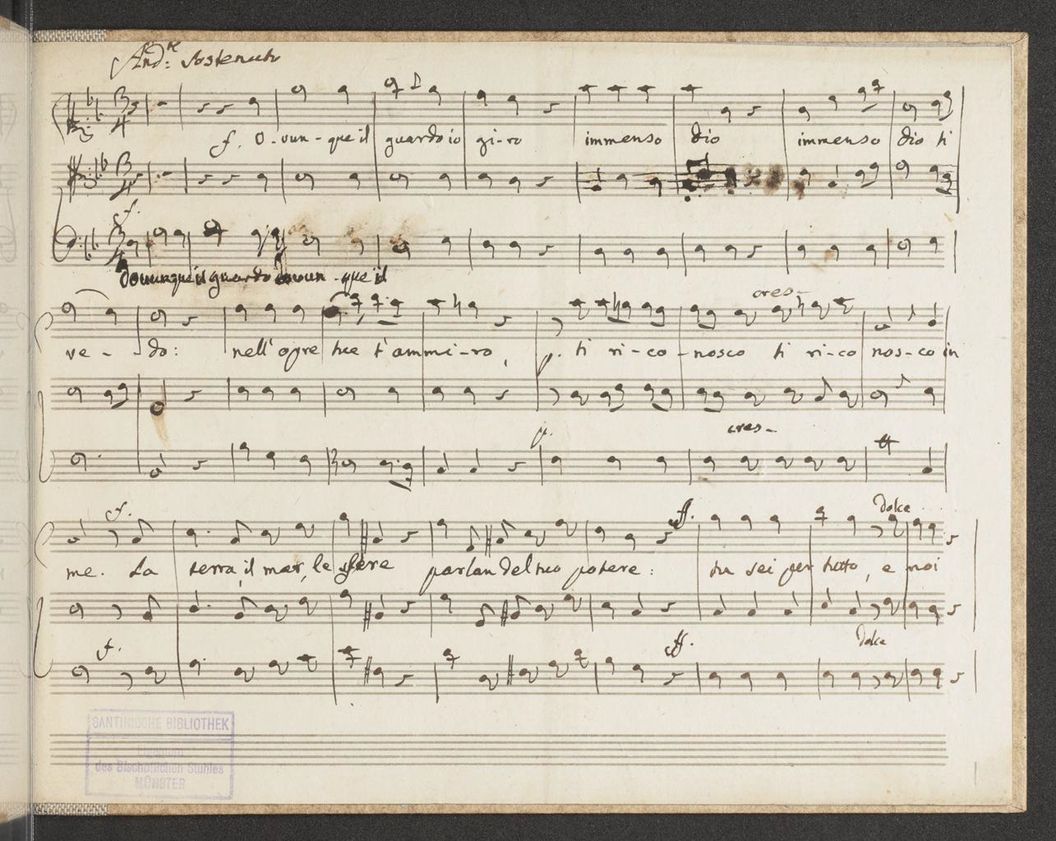 And.e sostenuto
f. O-vun-que il guardo io gi-ro immenso dio immenso dio ti
f.
dovunque il guardo Dovun-que il
cres-
ve-do: nell' opre tue t'ammi-ro, p. ti ri-co-nosco ti ri-co nos-co in
cres-
p.
f. ff. dolce
me. La terra, il mar, le sfere parlan del tuo potere: tu sei per tutto, e noi
f. ff. dolce
SANTINISCHE BIBLIOTHEK
Eigentum
des Bischöflichen Stuhles
MÜNSTER